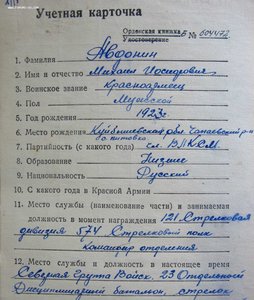 Учетная карточка
Орденская книжка Б
Удостоверение № 604478
1. Фамилия Авдонин
2. Имя и отчество Михаил Иосифович
3. Воинское звание Красноармеец
4. Пол Мужской
5. Год рождения 1923г
6. Место рождения Куйбышевская обл. Чапаевский р-н
7. Партийность (с какого года) чл. ВЛКСМ
8. Образование Низшее
9. Национальность Русский
10. С какого года в Красной Армии
11. Место службы (наименование части) и занимаемая
должность в момент награждения 121 Стрелковая
дивизия 574 Стрелковый полк
командир отделения
12. Место службы и должность в настоящее время
Северная Группа Войск, 23 Отдельный
Дисциплинарный батальон, стрелок